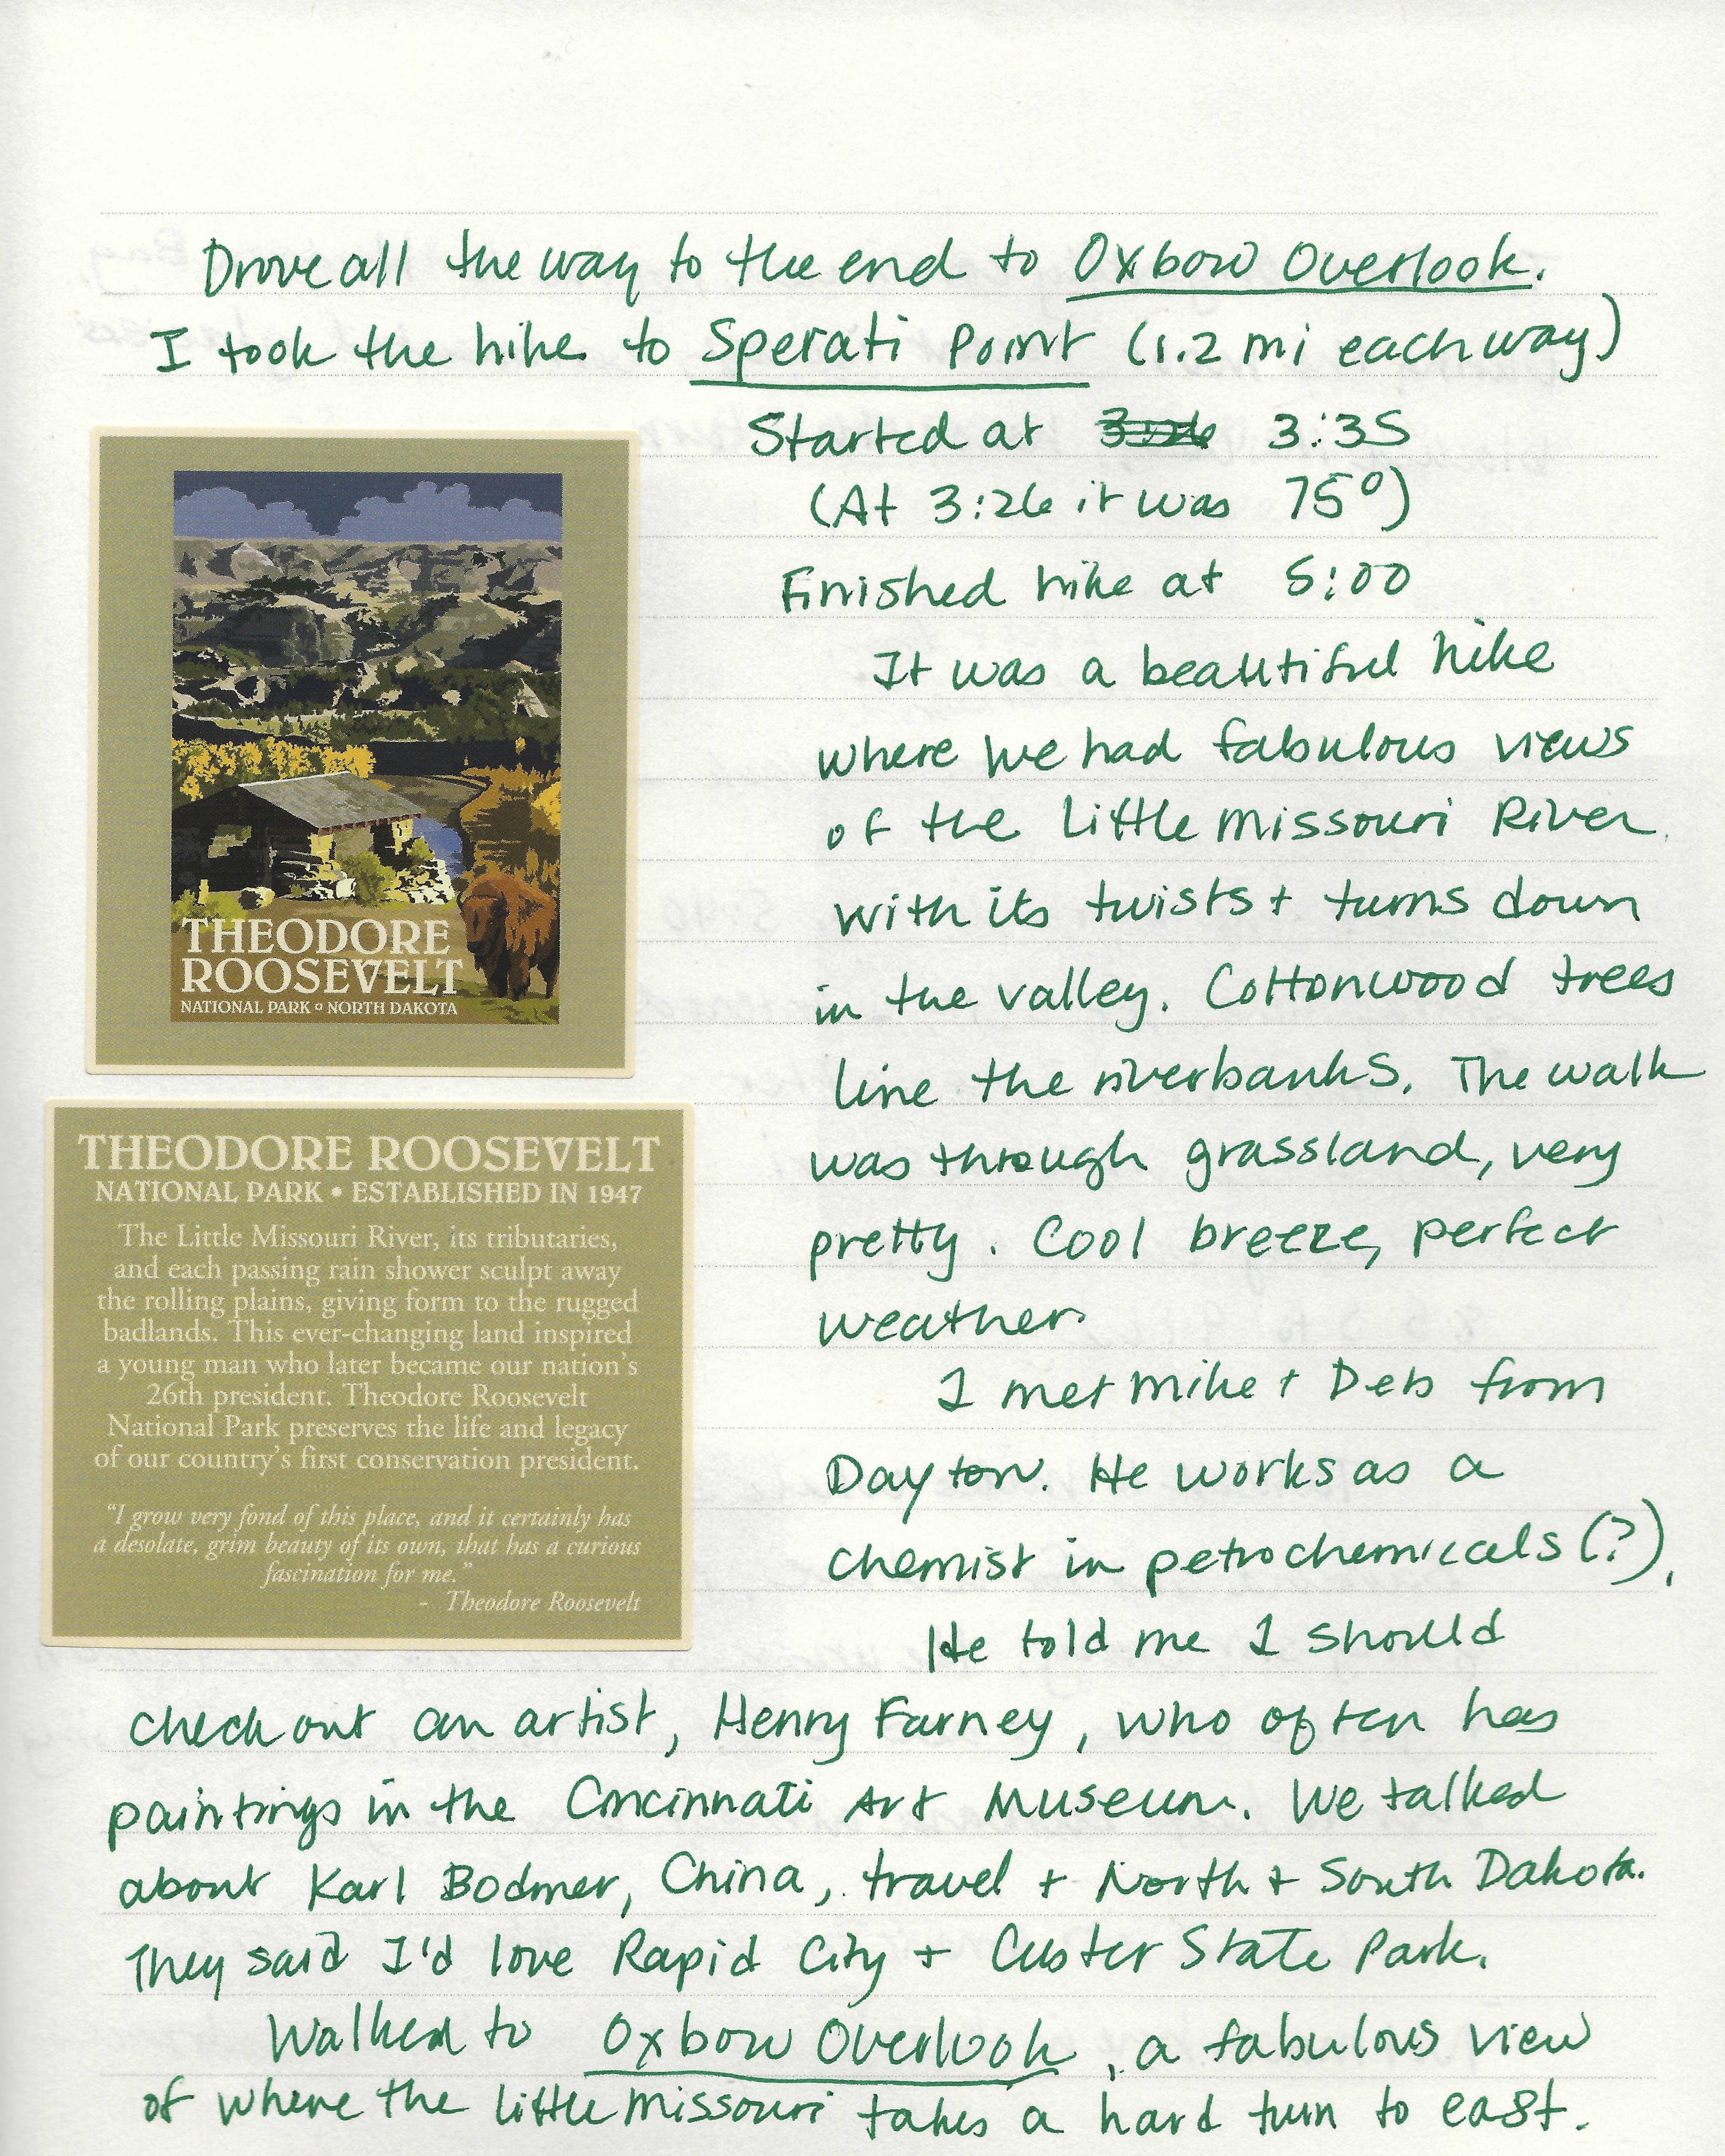 Drove all the way to the end to Oxbow Overlook.
I took the hike to Sperati Point (1.2 mi each way)
Started at 3:26 3:35
(At 3:26 it was 75°)
Finished hike at 5:00
It was a beautiful hike
where we had fabulous views
of the Little Missouri River
with its twists + turns down
in the valley. Cottonwood trees
line the riverbanks. The walk
was through grassland, very
pretty. Cool breeze, perfect
weather.
I met Mike + Deb from
Dayton. He works as a
chemist in petrochemicals (?).
He told me I should
check out an artist, Henry Farney, who often has
paintings in the Cincinnati Art Museum. We talked
about Karl Bodmer, China, travel + North + South Dakota.
They said I'd love Rapid City + Custer State Park.
Walked to Oxbow Overlook, a fabulous view
of where the Little Missouri takes a hard turn to east.
THEODORE
ROOSEVELT
NATIONAL PARK NORTH DAKOTA
THEODORE ROOSEVELT
NATIONAL PARK • ESTABLISHED IN 1947
The Little Missouri River, its tributaries,
and each passing rain shower sculpt away
the rolling plains, giving form to the rugged
badlands. This ever-changing land inspired
a young man who later became our nation's
26th president. Theodore Roosevelt
National Park preserves the life and legacy
of our country's first conservation president.
"I grow very fond of this place, and it certainly has
a desolate, grim beauty of its own, that has a curious
fascination for me."
- Theodore Roosevelt